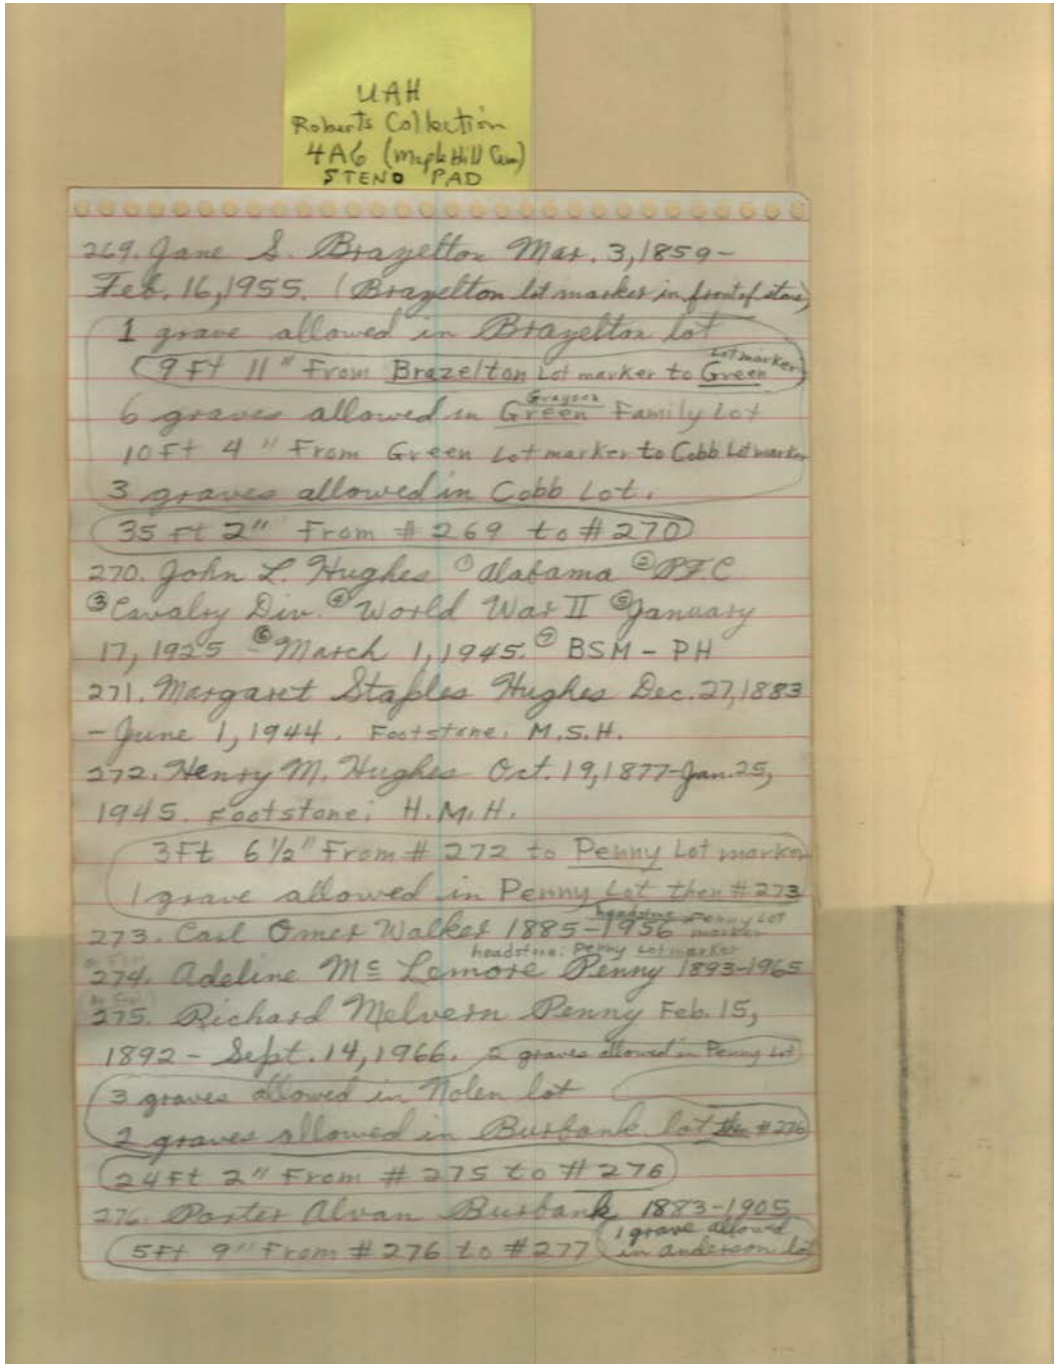 UAH
Roberts Collection
4A6 (Maple Hill Cem)
STENO PAD
269. Jane S. Brazelton Mar. 3, 1859-
Feb. 16, 1955. (Brazelton lot marker in front of stone)
1 grave allowed in Brazelton lot
9 Ft 11" From Brazelton Lot marker to Green Lot marker
Grayson
6 graves allowed in Green Family Lot
10 Ft 4" From Green Lot marker to Cobb Lot marker
3 graves allowed in Cobb Lot.
35 ft 2" From #269 to #270
270. John L. Hughes ① Alabama ② PFC
③ Cavalry Div. ④ World War II ⑤ January
17, 1925 ⑥ March 1, 1945. ⑦ BSM - PH
271. Margaret Staples Hughes Dec. 27, 1883
- June 1, 1944. Footstone: M.S.H.
272. Henry M. Hughes Oct. 19, 1877-Jan. 25,
1945. Footstone: H.M.H.
3 Ft 6 1/2" From #272 to Penny Lot marker
1 grave allowed in Penny Lot then #273
headstone Penny Lot marker
273. Carl Omer Walker 1885-1956
headstone: Penny Lot marker
274. Adeline Mc Lemore Penny 1893-1965
275. Richard Melvern Penny Feb. 15,
1892 - Sept. 14, 1966. 2 graves allowed in Penny Lot
3 graves allowed in Nolen lot
2 graves allowed in Burbank lot then #276
24 Ft 2" From #275 to #276
276. Porter Alvan Burbank 1883-1905
5 Ft 9" From #276 to #277 1 grave allowed
in Anderson lot